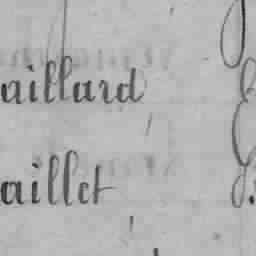 aillard
aillet